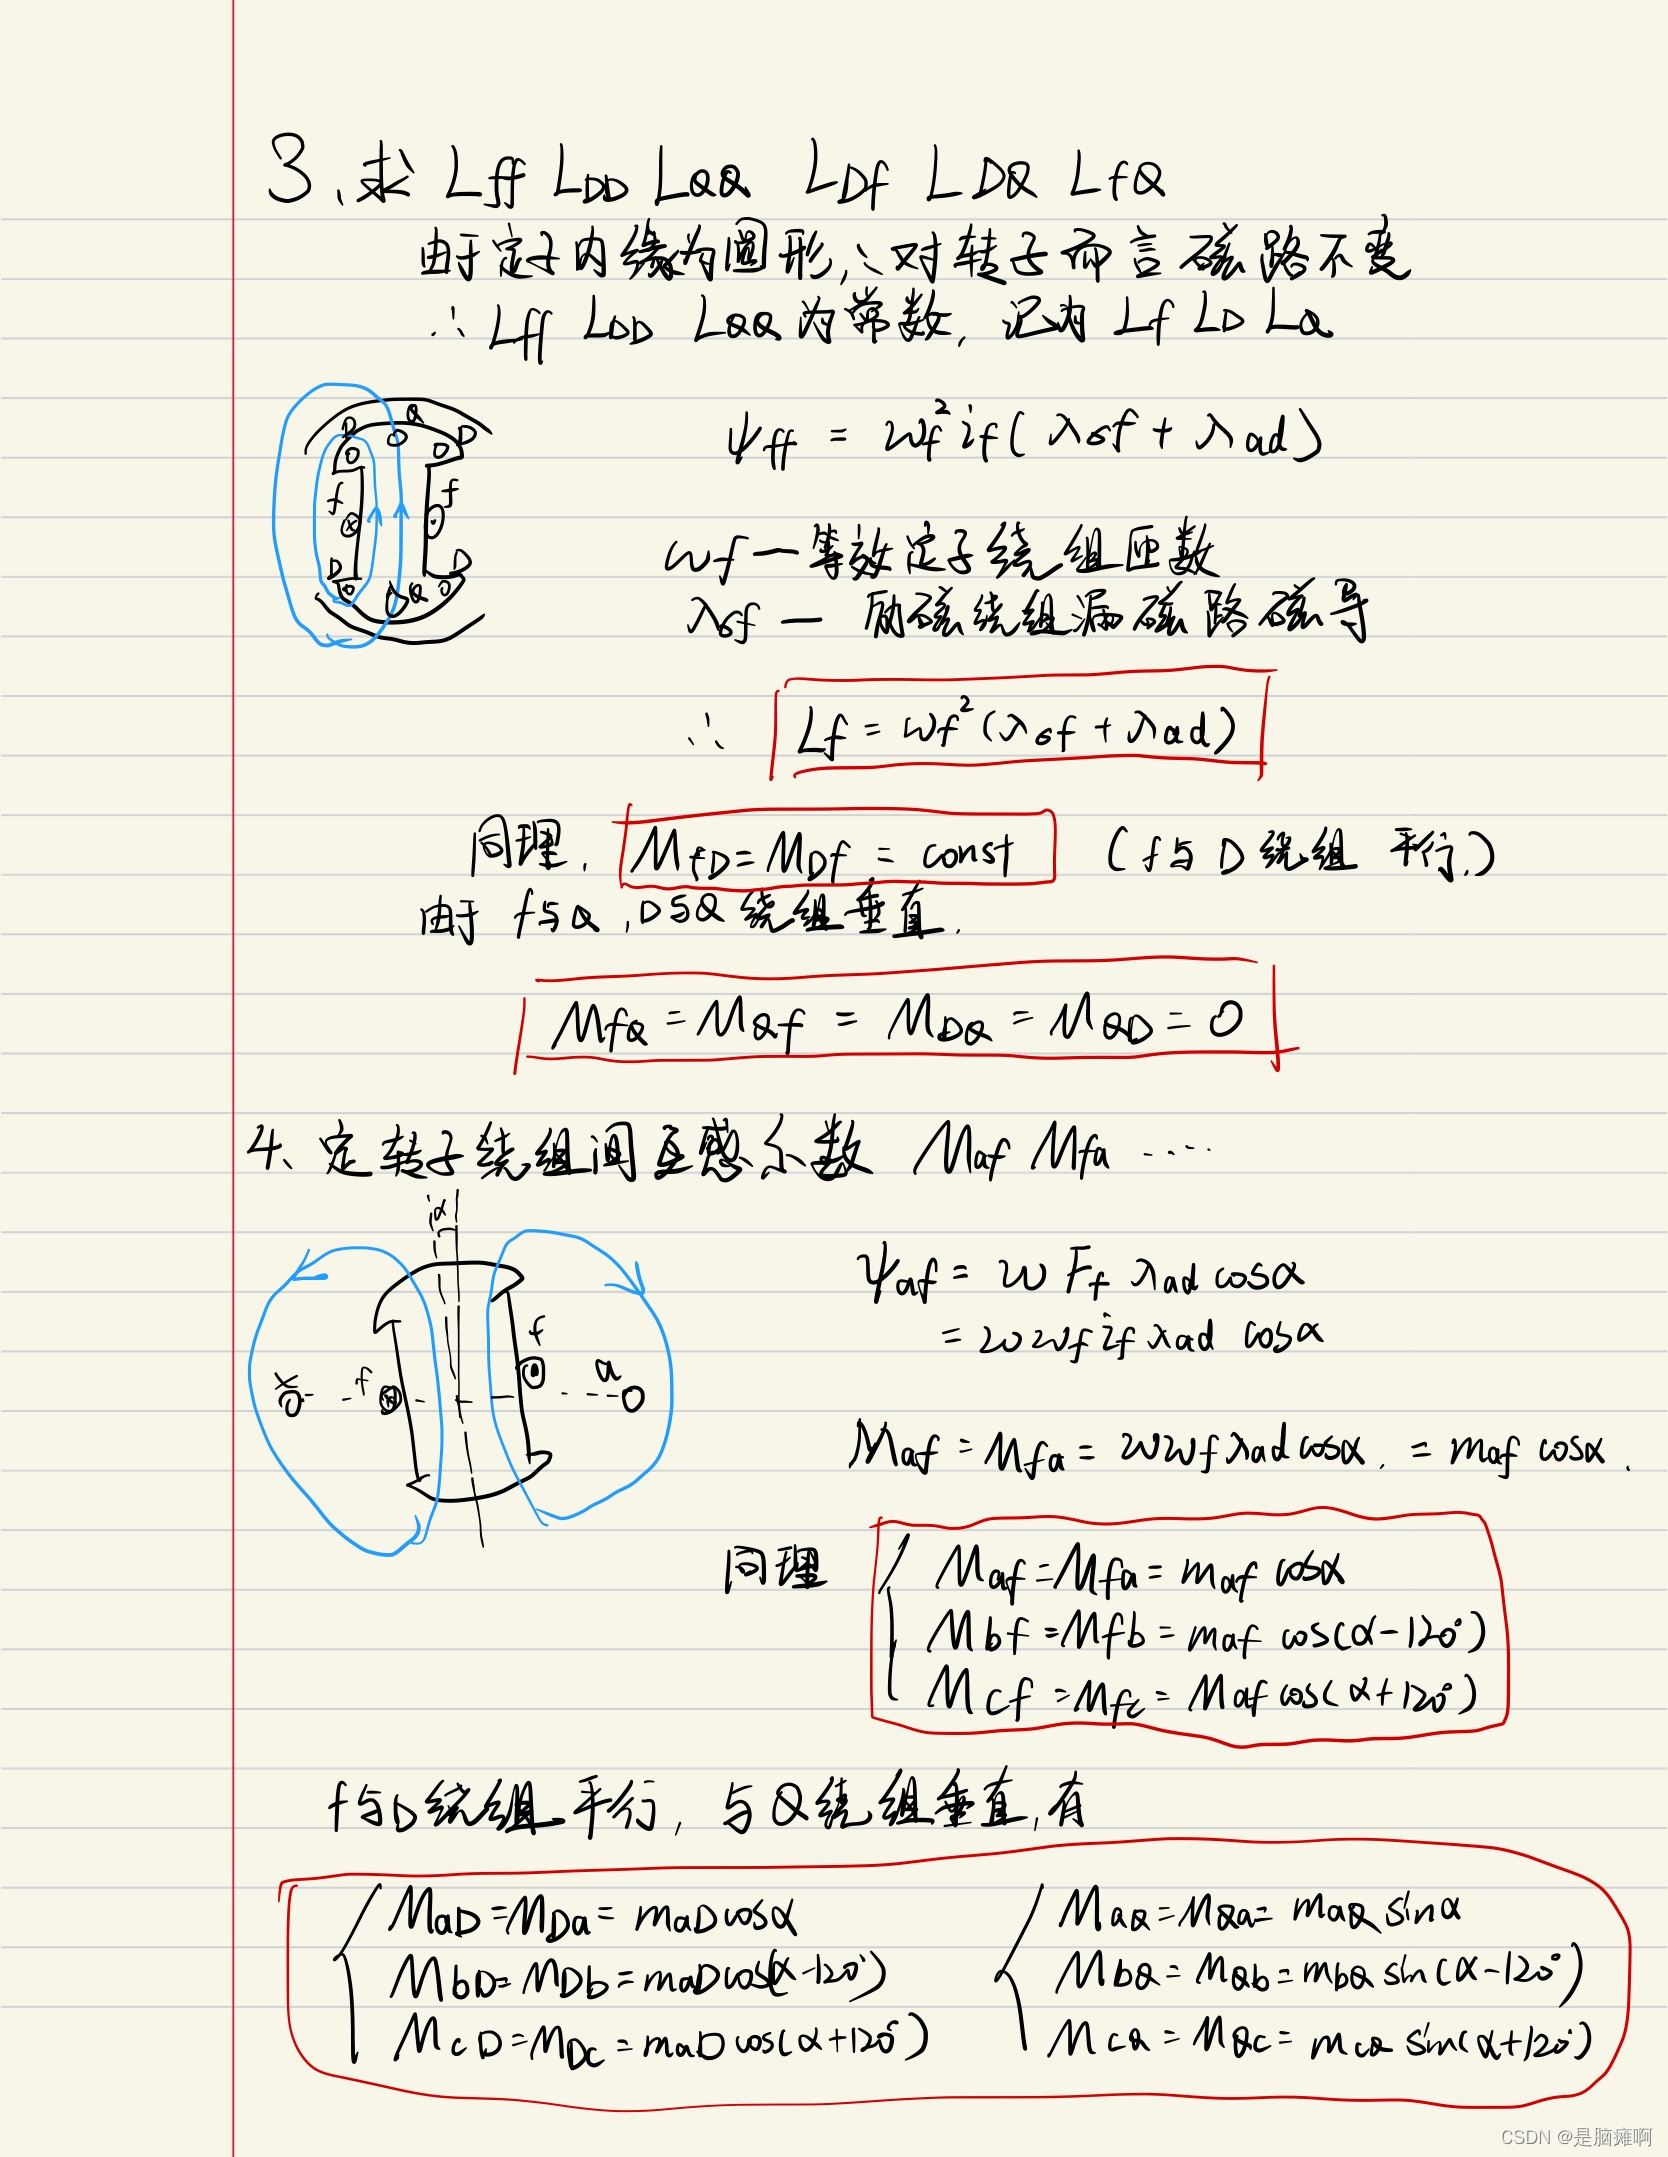 3、求 Lff LDD LQQ LDf LDQ LfQ
由于定子内缘为圆形,∴对转子而言磁路不变
∴ Lff LDD LQQ为常数, 记为 Lf LD LQ
D Q D
f f
D Q D
ψff = wf²if(λσf + λad)
wf — 等效定子绕组匝数
λσf — 励磁绕组漏磁路磁导
∴ Lf = wf²(λσf + λad)
同理, MfD = MDf = const (f与D绕组 平行,)
由于 f与Q, D与Q 绕组垂直.
MfQ = MQf = MDQ = MQD = 0
4、定转子绕组间互感系数 Maf Mfa ····
α
f
x f a
ψaf = w Ff λad cosα
= wwf if λad cosα
Maf = Mfa = wwf λad cosα. = maf cosα.
同理
Maf = Mfa = maf cosα
Mbf = Mfb = maf cos(α-120°)
Mcf = Mfc = Maf cos(α+120°)
f与D绕组平行, 与Q绕组垂直,有
MaD = MDa = maD cosα MaQ = MQa = maQ sinα
MbD = MDb = maD cos(α-120°) MbQ = MQb = mbQ sin(α-120°)
McD = MDc = maD cos(α+120°) McQ = MQc = mcQ sin(α+120°)
CSDN @是脑瘫啊